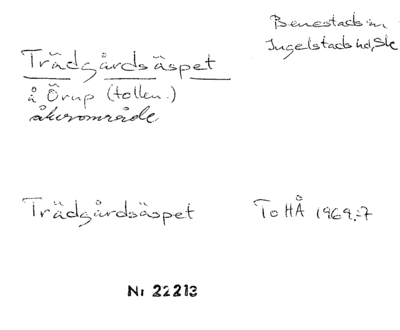 Benestads sn
Ingelstads hd, Sk
Trädgårdsäspet
å Örup (tolkn.)
åkerområde
Trädgårdsäspet
ToHÅ 1969:7
Nr 22213